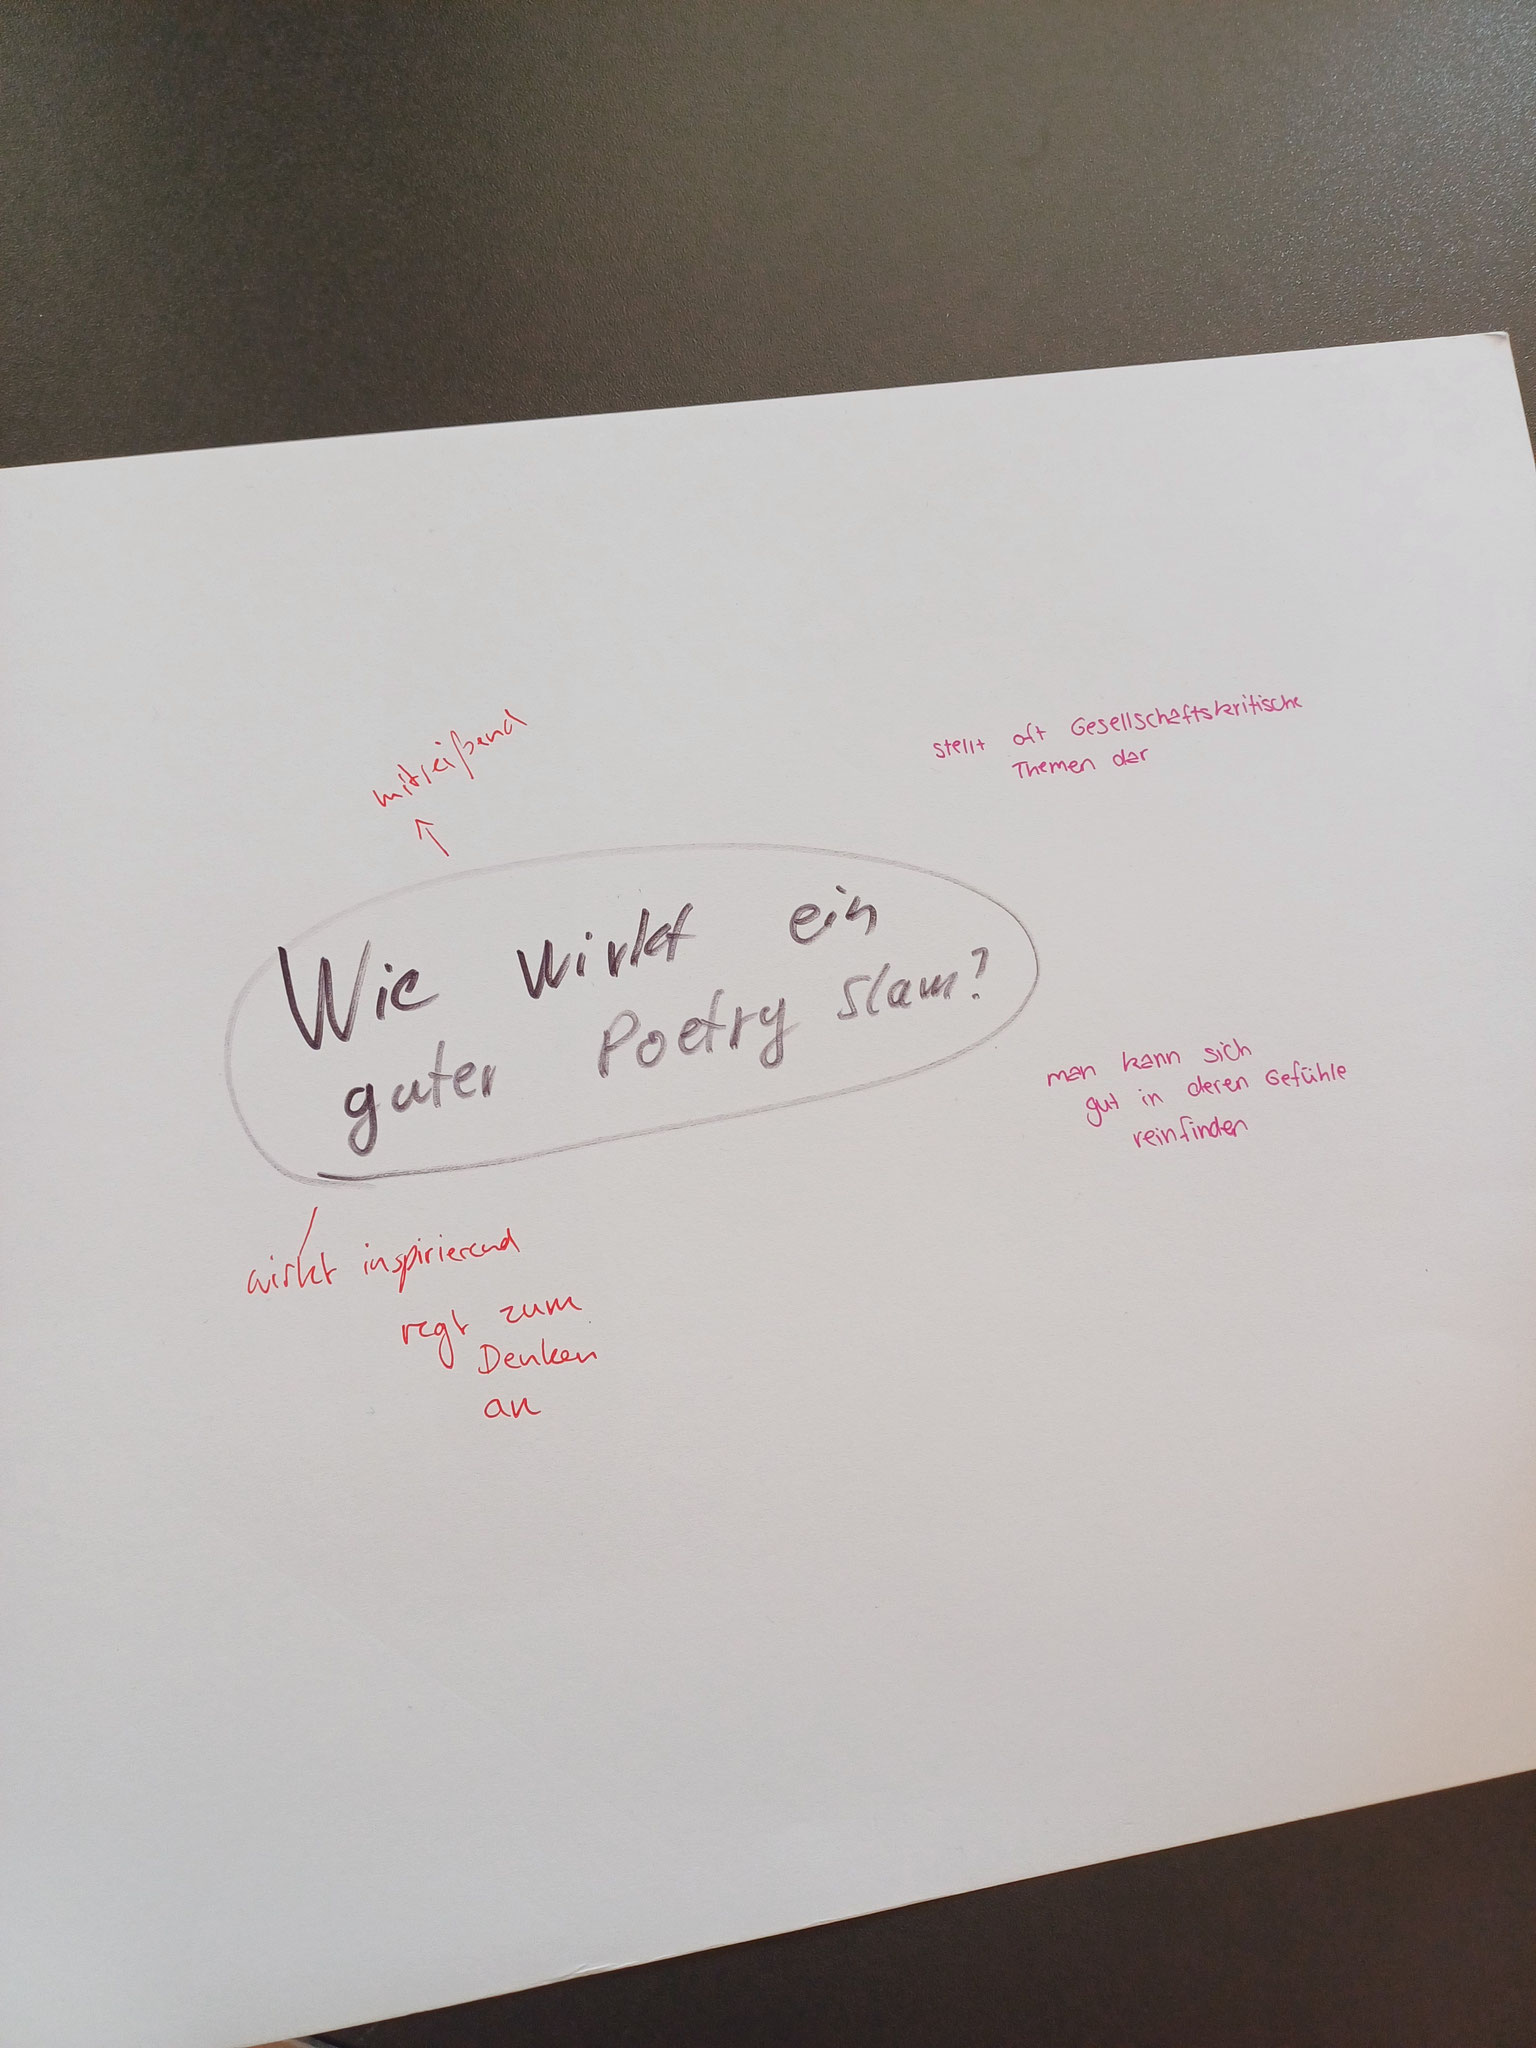 mitreißend
stellt oft Gesellschaftskritische
Themen dar
Wie wirkt ein
guter Poetry Slam?
man kann sich
gut in deren Gefühle
reinfinden
wirkt inspirierend
regt zum
Denken
an